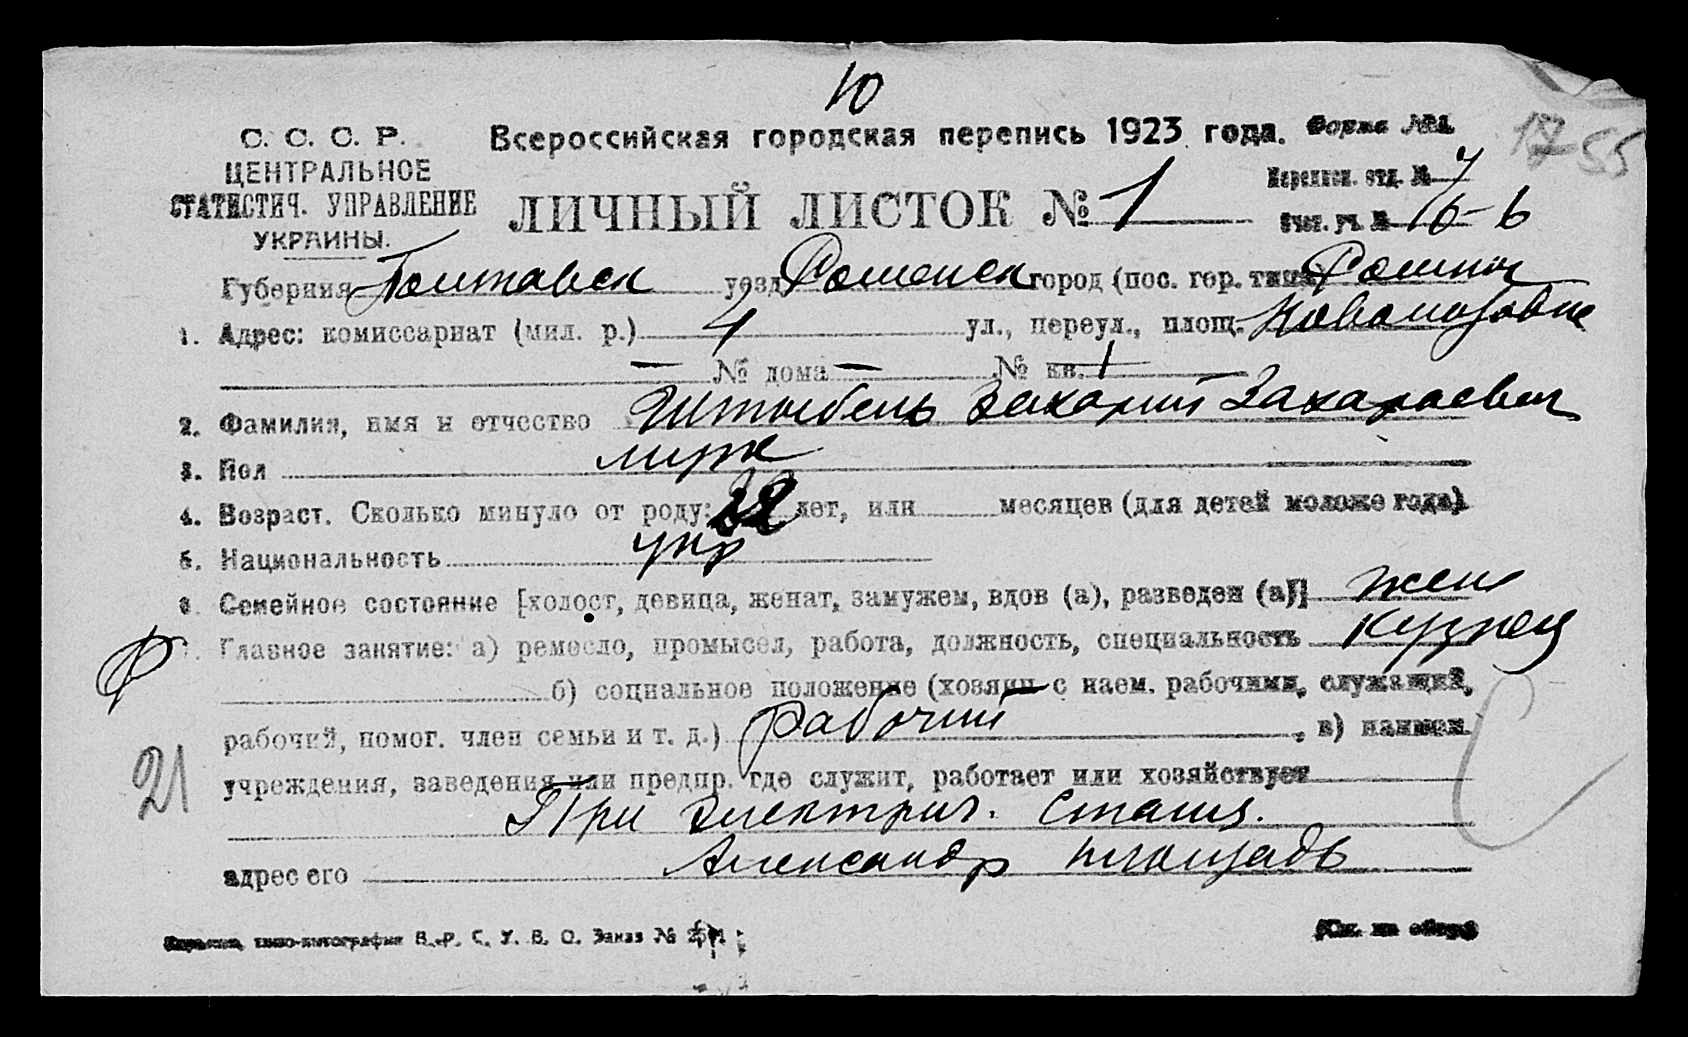 10
С. С. С. Р.
ЦЕНТРАЛЬНОЕ
СТАТИСТИЧ. УПРАВЛЕНИЕ
УКРАИНЫ.
Всероссийская городская перепись 1923 года.
Форма №1.
1755
ЛИЧНЫЙ ЛИСТОК № 1
Переписн. отд. №
Счет. уч. № 16-6
Губерния Полтавск уезд Роменск город (пос. гор. типа) Ромны
1. Адрес: комиссариат (мил. р.) 4 ул., переул., площ.
— № дома — № кв. 1
2. Фамилия, имя и отчество Штыбель Захарий Захараевич
3. Пол муж
4. Возраст. Сколько минуло от роду: лет, или месяцев (для детей моложе года)
5. Национальность укр
6. Семейное состояние [холост, девица, женат, замужем, вдов (а), разведен (а)] жен
7. Главное занятие: а) ремесло, промысел, работа, должность, специальность кузнец
б) социальное положение (хозяин с наем. рабочими, служащий,
рабочий, помог. член семьи и т. д.) рабочий, в) наимен.
21
учреждения, заведения или предпр. где служит, работает или хозяйствует
При электрич. станц.
адрес его Александр площадь
типо-литография В. Р. С. У. В. О. Заказ №
(См. на обор.)